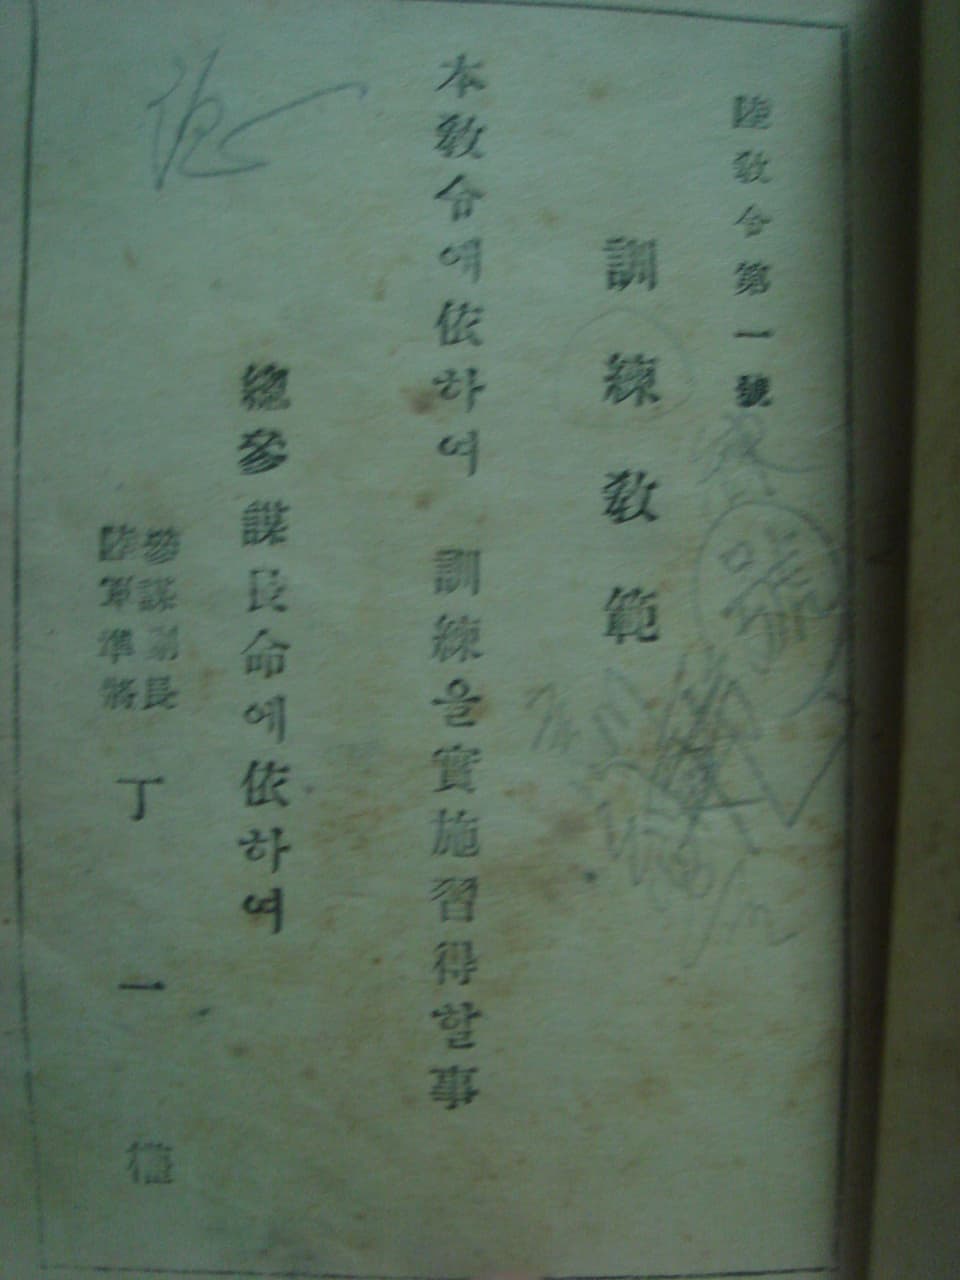 陸敎令第一號
訓練敎範
本敎令에依하여 訓練을實施習得할事
總參謀長命에依하여
參謀副長
陸軍準將
丁一權